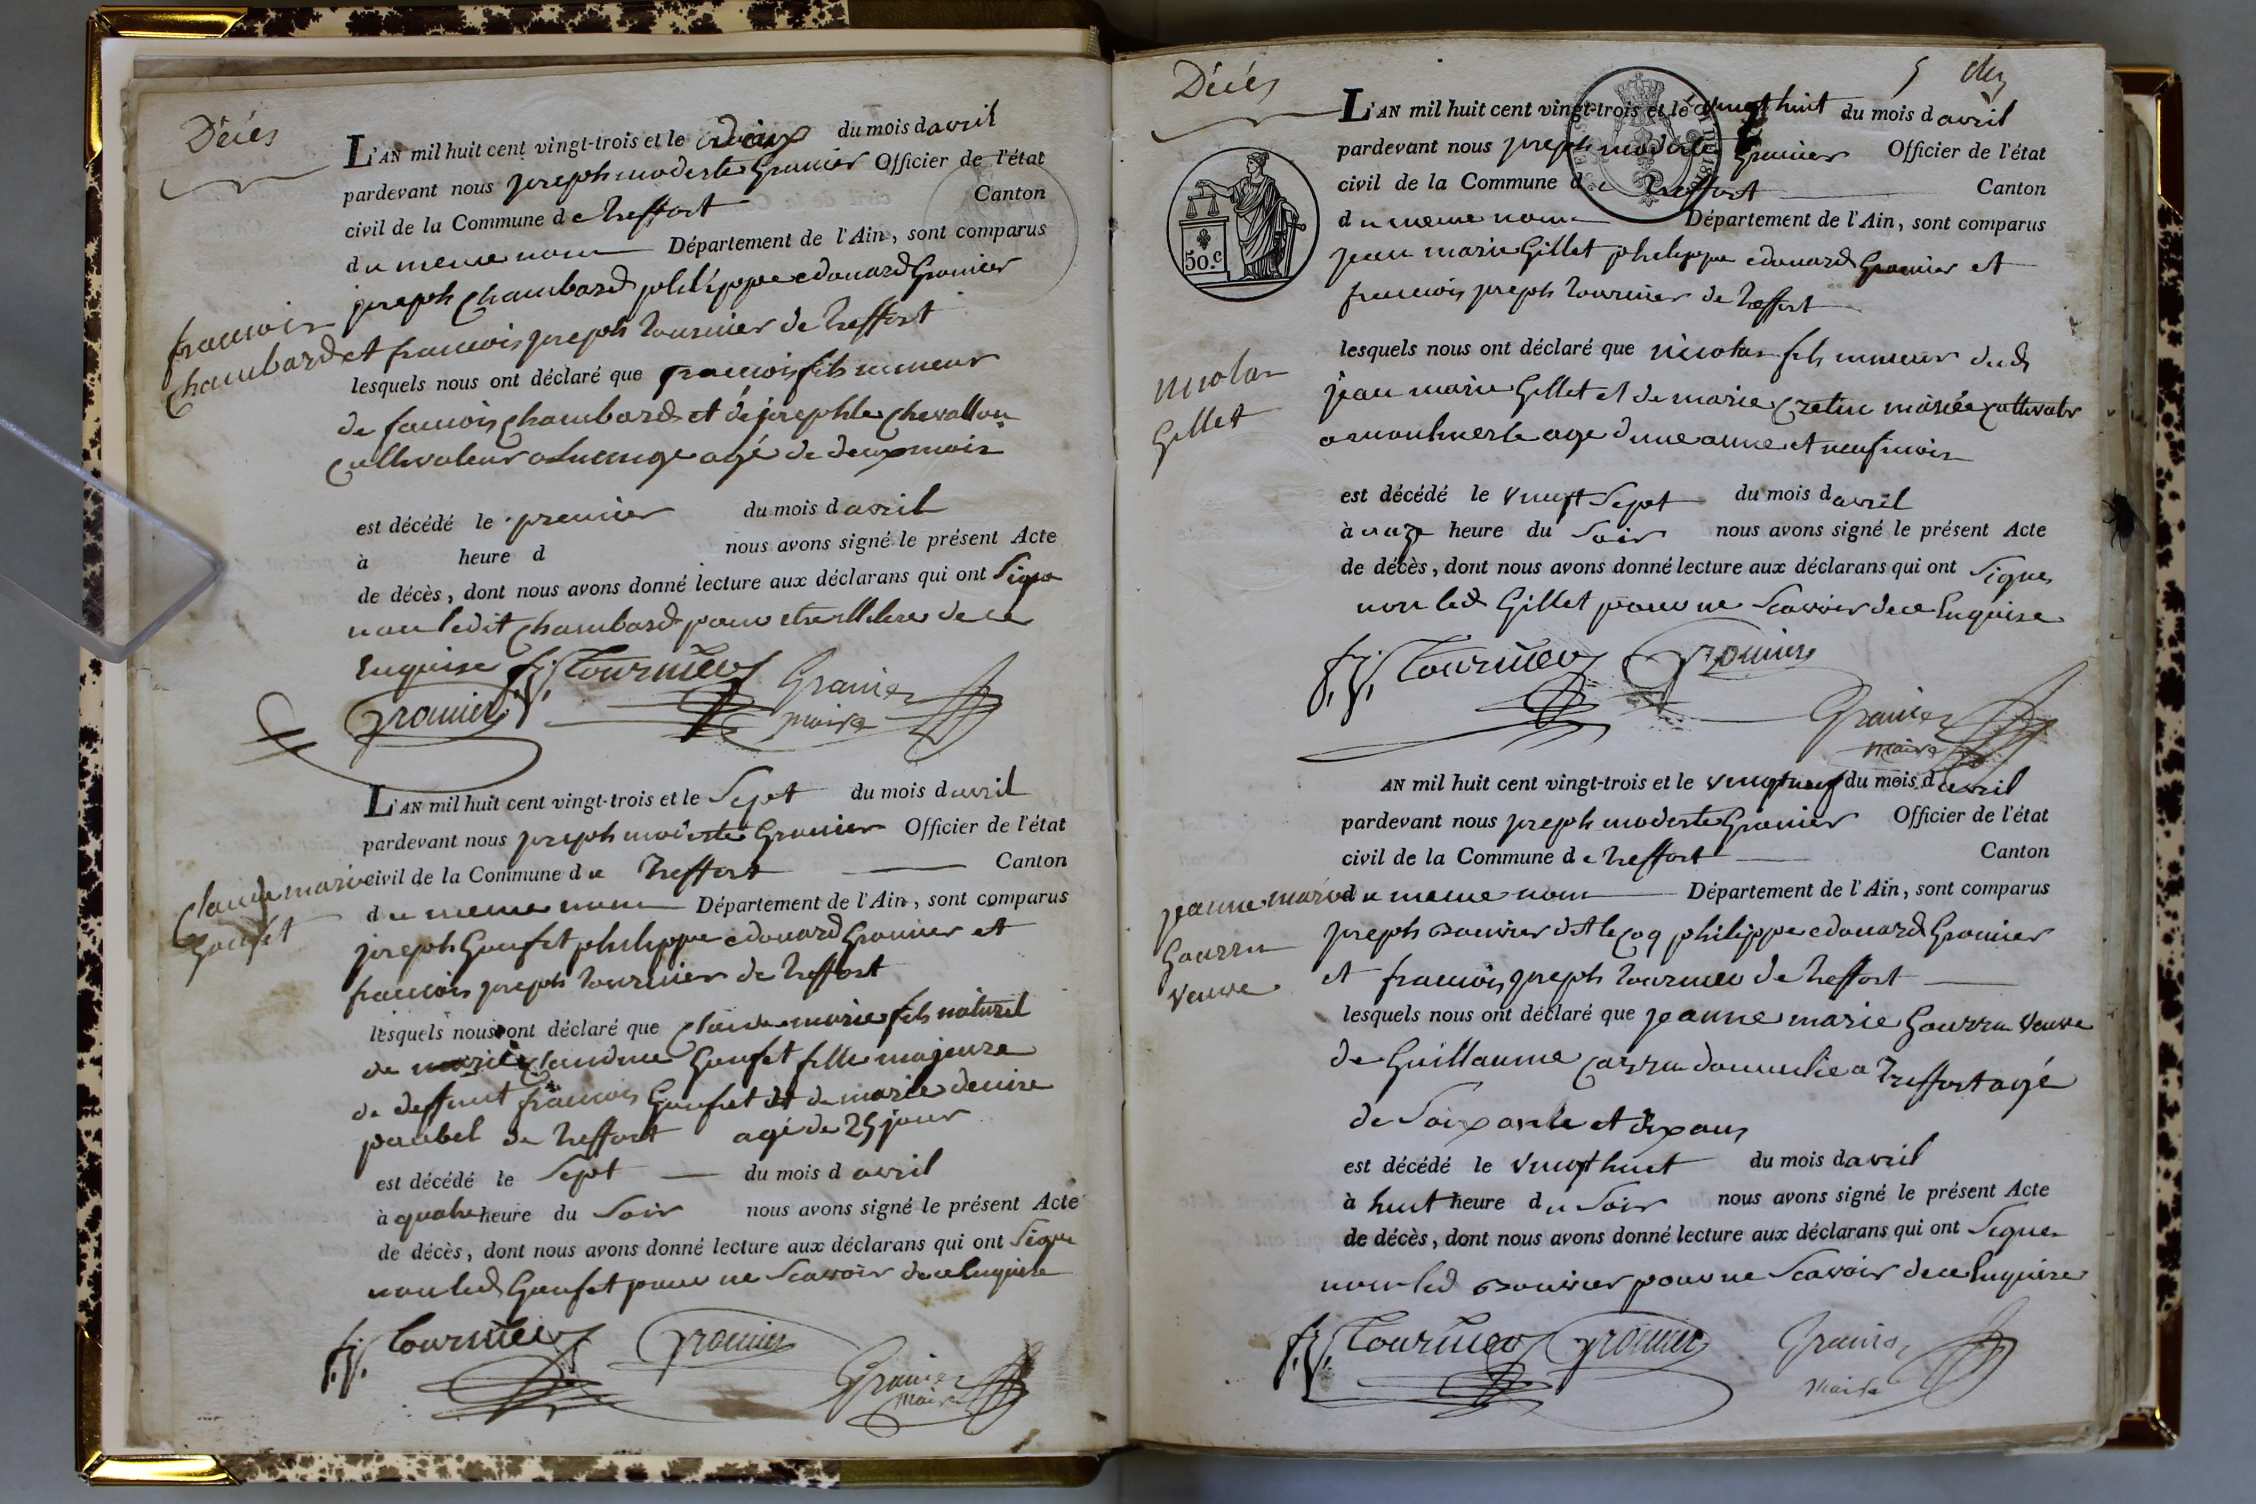 Décés
L'AN mil huit cent vingt-trois et le deux du mois d avril
pardevant nous joseph modeste Granier Officier de l'état
civil de la Commune d e treffort Canton
d u meme nom Département de l'Ain, sont comparus
joseph Chambard philippe edouard Gromier
et francois joseph tournier de treffort
francois
Chambard
lesquels nous ont déclaré que francois fils mineur
de francois Chambard et de josephte Chevallon
Cultivateur a agé de deux mois
est décédé le premier du mois d avril
à heure d nous avons signé le présent Acte
de décès, dont nous avons donné lecture aux déclarans qui ont Signé
non ledit Chambard pour etre illitere de ce
Enquise f: j: Tournier Granier
Gromier maire
L'AN mil huit cent vingt-trois et le Sept du mois d avril
pardevant nous joseph modeste Granier Officier de l'état
civil de la Commune d e treffort Canton
d u meme nom Département de l'Ain, sont comparus
Claude marie
Goufet
joseph Goufet philippe edouard Gromier et
francois joseph tournier de treffort
lesquels nous ont déclaré que Claude marie fils naturel
de marie Claudine Goufet fille majeure
de deffunt francois Goufet et de marie denise
paubel de treffort agé de 25 jour
est décédé le Sept du mois d avril
à quatre heure du Soir nous avons signé le présent Acte
de décès, dont nous avons donné lecture aux déclarans qui ont Signé
non led Goufet pour ne Scavoir de ce Enquise
f: j: Tournier Gromier
Granier
maire
5
Décés
L'AN mil huit cent vingt-trois et le vingt huit du mois d avril
pardevant nous joseph modeste Granier Officier de l'état
civil de la Commune d e treffort Canton
d u meme nom Département de l'Ain, sont comparus
50.c
jean marie Gillet philippe edouard Gromier et
francois joseph tournier de treffort
nicolas
Gillet
lesquels nous ont déclaré que nicolas fils mineur dud
jean marie Gillet et de marie Cretin mariée Cultivatr
a age dune anne et neuf mois
est décédé le vingt Sept du mois d avril
à onze heure du Soir nous avons signé le présent Acte
de décès, dont nous avons donné lecture aux déclarans qui ont Signé
non led Gillet pour ne Scavoir de ce Enquise
f: j: Tournier Gromier
Granier
maire
AN mil huit cent vingt-trois et le vingt neuf du mois d avril
pardevant nous joseph modeste Granier Officier de l'état
civil de la Commune d e treffort Canton
d u meme nom Département de l'Ain, sont comparus
jeanne marie
Gourru
veuve
joseph Bouvier dit le Coq philippe edouard Gromier
et francois joseph tournier de treffort
lesquels nous ont déclaré que jeanne marie Gourru veuve
de Guillaume Carru domicilie a treffort agé
de Soixante et dix ans
est décédé le vingt huit du mois d avril
à huit heure d u Soir nous avons signé le présent Acte
de décès, dont nous avons donné lecture aux déclarans qui ont Signé
non led Bouvier pour ne Scavoir de ce Enquise
f: j: Tournier Gromier Granier
maire